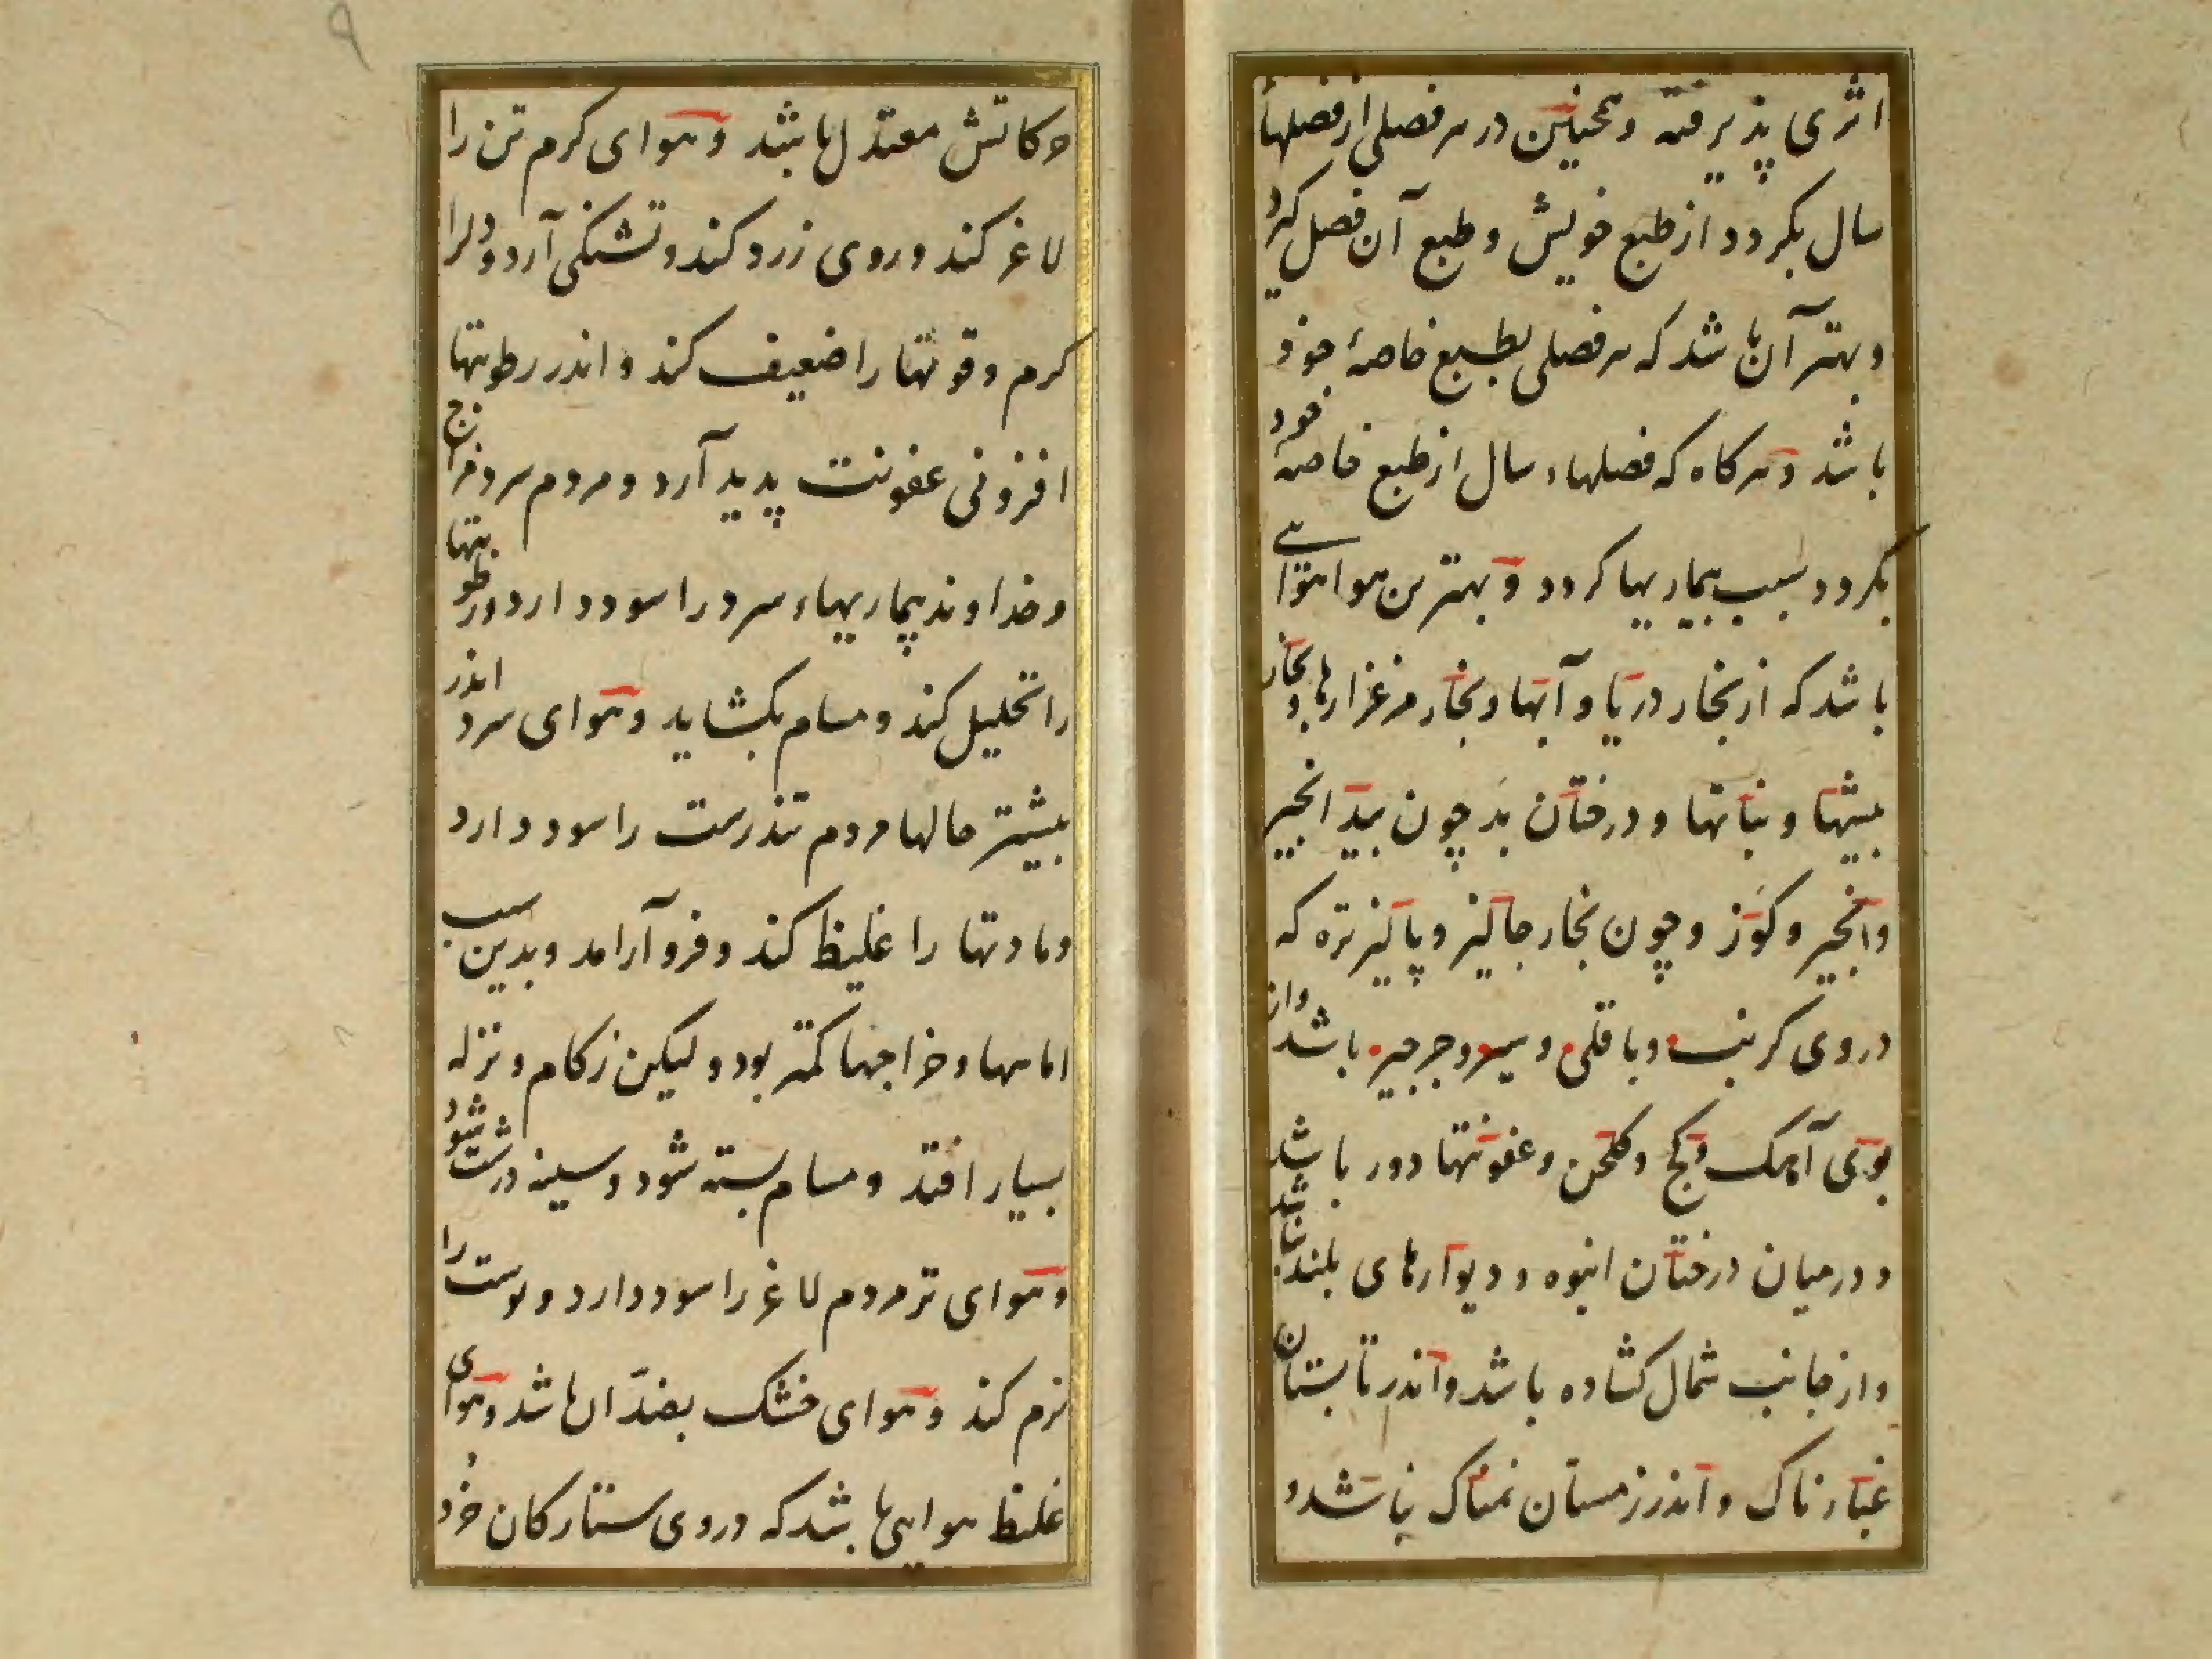 اثری پذیرفته و همچنین در هر فصلی از فصلهاء
سال بکردد از طبع خویش و طبع آن فصل کیرد
و بهتر آن باشد که هر فصلی بطبع خاصهٔ خود
باشد و هر کاه که فصلهاء سال از طبع خاصهٔ خود
بکردد سبب بیماریها کردد و بهترین هوا هوائے
باشد که از بخار دریا و آبها و بخار مرغزارها و بخار
بیشها و نباتها و درختان بد چون بید انجیر
و انجیر و کوز و چون بخار جالیز و پالیز تره که
دروی کرنب و باقلی و سیر و جرجیر باشد و از
بوی آهک و کچ و کلخن و عفونتها دور باشد
و در میان درختان انبوه و دیوارهای بلند نباشد
و از جانب شمال کشاده باشد و اندر تابستان
غبارناک و اندر زمستان نمناک نباشد و
۹
حرکاتش معتدل باشد و هوای کرم تن را
لاغر کند و روی زرد کند و تشنکی آرد و دل را
کرم و قوتها را ضعیف کند و اندر رطوبتها
افزونی عفونت پدید آرد و مردم سرد مزاج
و خداوند بیماریهاء سرد را سود دارد و رطوبتها
را تحلیل کند و مسام بکشاید و هوای سرد اندر
بیشتر حالها مردم تندرست را سود دارد
و مادتها را غلیظ کند و فرو آرامد و بدین سبب
اماسها و خراجها کمتر بود و لیکن زکام و نزله
بسیار افتد و مسام بسته شود و سینه درشت شود
و هوای تر مردم لاغر را سود دارد و پوست را
نرم کند و هوای خشک بضد آن باشد و هوای
غلیظ هوایی باشد که دروی ستارکان خرد